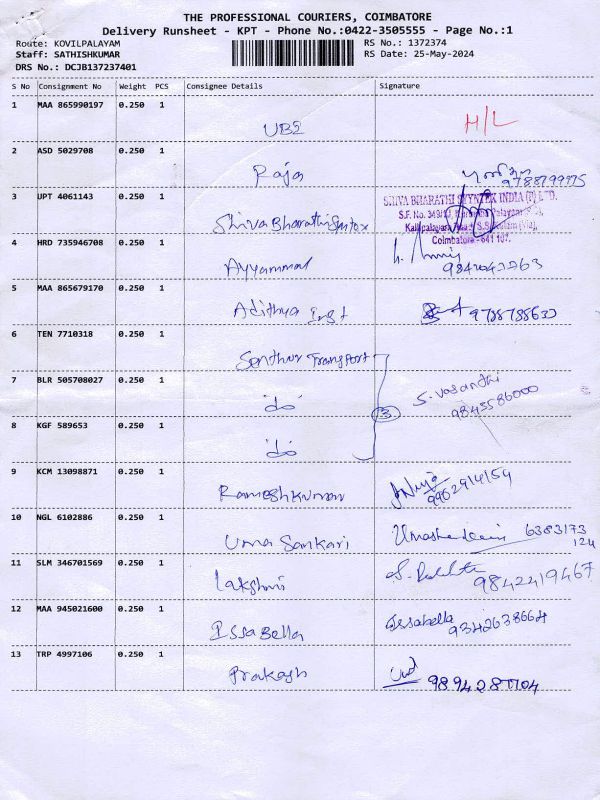 THE PROFESSIONAL COURIERS, COIMBATORE
Delivery Runsheet - KPT - Phone No.:0422-3505555 - Page No.:1
Route: KOVILPALAYAM
RS No.: 1372374
Staff: SATHISHKUMAR
RS Date: 25-May-2024
DRS No.: DCJB137237401
S No Consignment No Weight PCS Consignee Details Signature
1 MAA 865990197 0.250 1
UBI H/L
2 ASD 5029708 0.250 1
Raja 9788799775
3 UPT 4061143 0.250 1
SHIVA BHARATHI SYNTEX INDIA (P) LTD.
S.F. No.
Coimbatore - 641 107.
Shiva Bharathi Syntex
4 HRD 735946708 0.250 1
Ayyammal
5 MAA 865679170 0.250 1
Adithya
6 TEN 7710318 0.250 1
Senthur Transport
7 BLR 505708027 0.250 1
"do" 3 S. Vasanthi
9843586000
8 KGF 589653 0.250 1
"do"
9 KCM 13098871 0.250 1
Rameshkumar 9962914154
10 NGL 6102886 0.250 1
Uma Sankari 6383173
124
11 SLM 346701569 0.250 1
Lakshmi 9842419467
12 MAA 945021600 0.250 1
Issabella Issabella
9342638664
13 TRP 4997106 0.250 1
Prakash